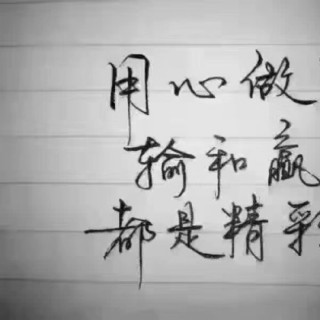 用心做
输和赢
都是精彩